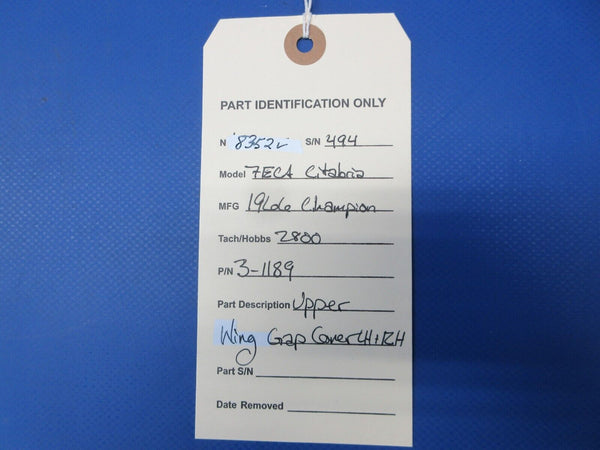 PART IDENTIFICATION ONLY
N 8352V S/N 494
Model 7ECA Citabria
MFG 1966 Champion
Tach/Hobbs 2800
P/N 3-1189
Part Description Upper
Wing Gap Cover LH+RH
Part S/N
Date Removed